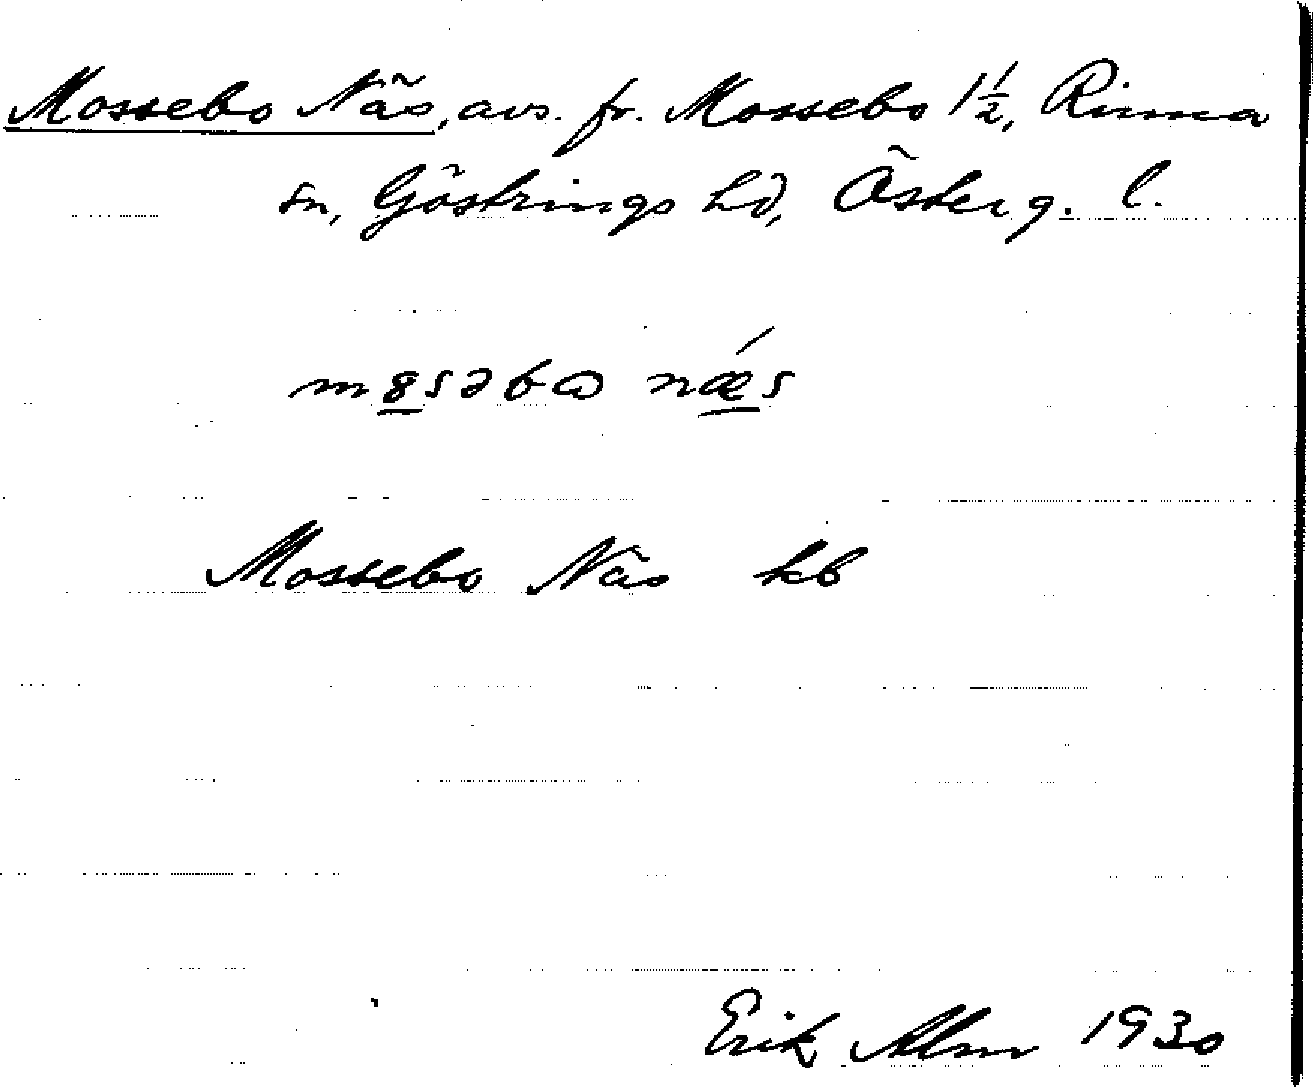 Mossebo Näs, avs. fr. Mossebo 1½, Rinna
sn, Göstrings hd, Österg. l.
mȣsəbɷ nǽs
Mossebo Näs kb
Erik Alm 1930